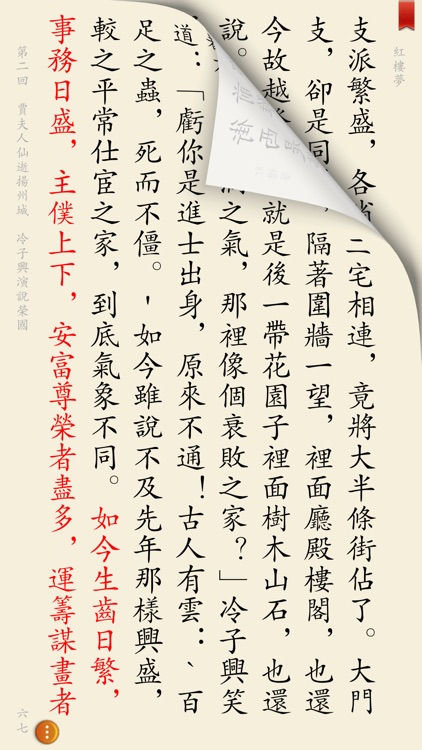 紅樓夢
支派繁盛，各 二宅相連，竟將大半條街佔了。大門
支，卻是同 隔著圍牆一望，裡面廳殿樓閣，也還
今故越 就是後一帶花園子裡面樹木山石，也還
說。 之氣，那裡像個衰敗之家？」冷子興笑
道：「虧你是進士出身，原來不通！古人有雲：、百
足之蟲，死而不僵。'如今雖說不及先年那樣興盛，
較之平常仕宦之家，到底氣象不同。如今生齒日繁，
事務日盛，主僕上下，安富尊榮者盡多，運籌謀畫者
第二回 賈夫人仙逝揚州城 冷子興演說榮國
六七